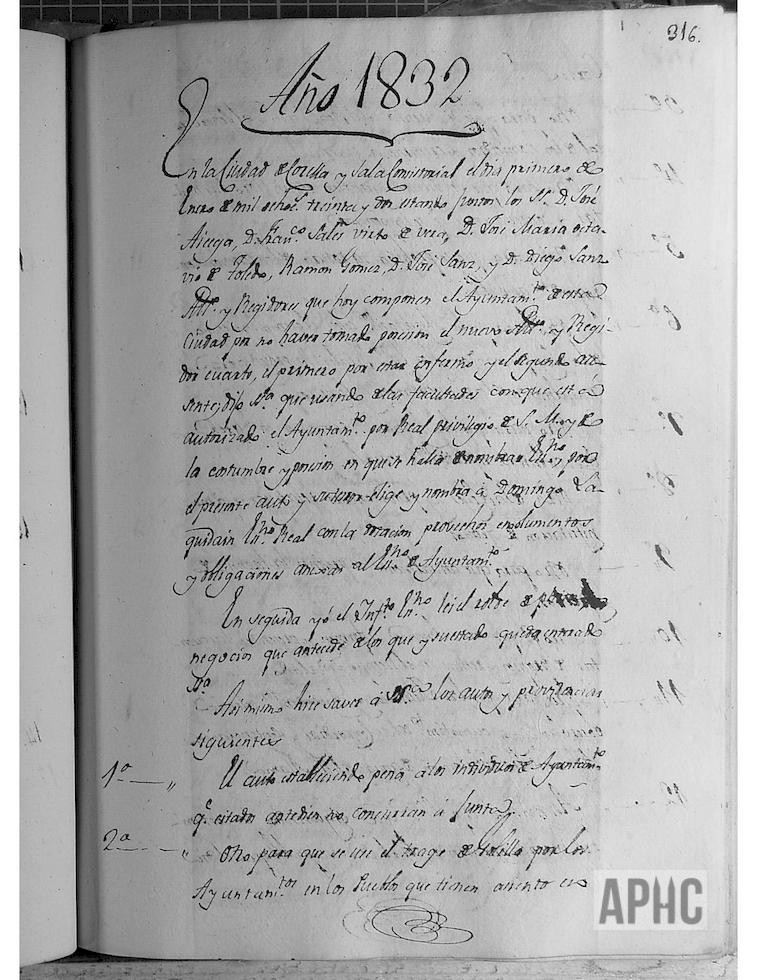 316.
Año 1832
En la Ciudad de Corella y Sala Consistorial el dia primero de
Enero de mil ochos. treinta y dos estando juntos los SS. D. José
Aicega, D. Franco. Sales Virto de Vera, D. José Maria Octa-
vio de Toledo, Ramon Gomez, D. José Sanz, y D. Diego Sanz
Alde. y Regidores que hoy componen el Ayuntamto. de esta
Ciudad por no haver tomado posesion el nuevo Alde. y Regi-
dor cuarto, el primero por estar enfermo y el segundo au-
sente, dijo Sa. que usando de las facultades con que está
autorizado el Ayuntamto. por Real privilegio de S. M. y de
la costumbre y posesion en que se halla de nombrar Esno. por
el presente auto y su tenor elige y nombra á Domingo La-
quidain Esno. Real con la dotacion provechos emolumentos
y obligaciones anexas al Esno. de Ayuntamto.
En seguida yó el Infto. Esno. lei el rolde de
negocios que antecede de los que y su estado quedó entrado
Sa.
Asi mismo hice saver á SSa. los autos y providencias
siguientes
1a. El auto estableciendo pena a los individuos de Ayuntamto.
qe. citados antediem no concurran á Junta,
2a. Otro para que se use el trage de Golilla por los
Ayuntamtos. en los Pueblos que tienen asiento en
APHC